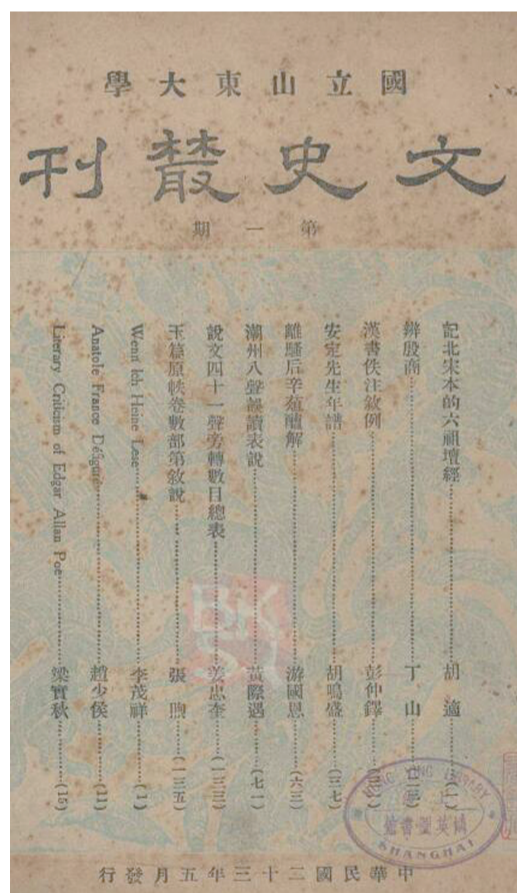 國立山東大學
文史叢刊
第一期
記北宋本的六祖壇經 胡適 (一)
辨殷商 丁山
漢書佚注敘例 彭仲鐸
安定先生年譜 胡鳴盛 (三七)
離騷后辛菹醢解 游國恩 (六三)
潮州八聲誤讀表說 黃際遇 (七一)
說文四十一聲旁轉數目總表 姜忠奎 (一三三)
玉篇原帙卷數部第敘說 張煦 (一三五)
Wenn Ich Heine Lese 李茂祥 (1)
Anatole France Déguisé 趙少侯 (11)
Literary Criticism of Edgar Allan Poe 梁實秋 (15)
中華民國二十三年五月發行
LIBRARY
鴻英圖書館
SHANGHAI